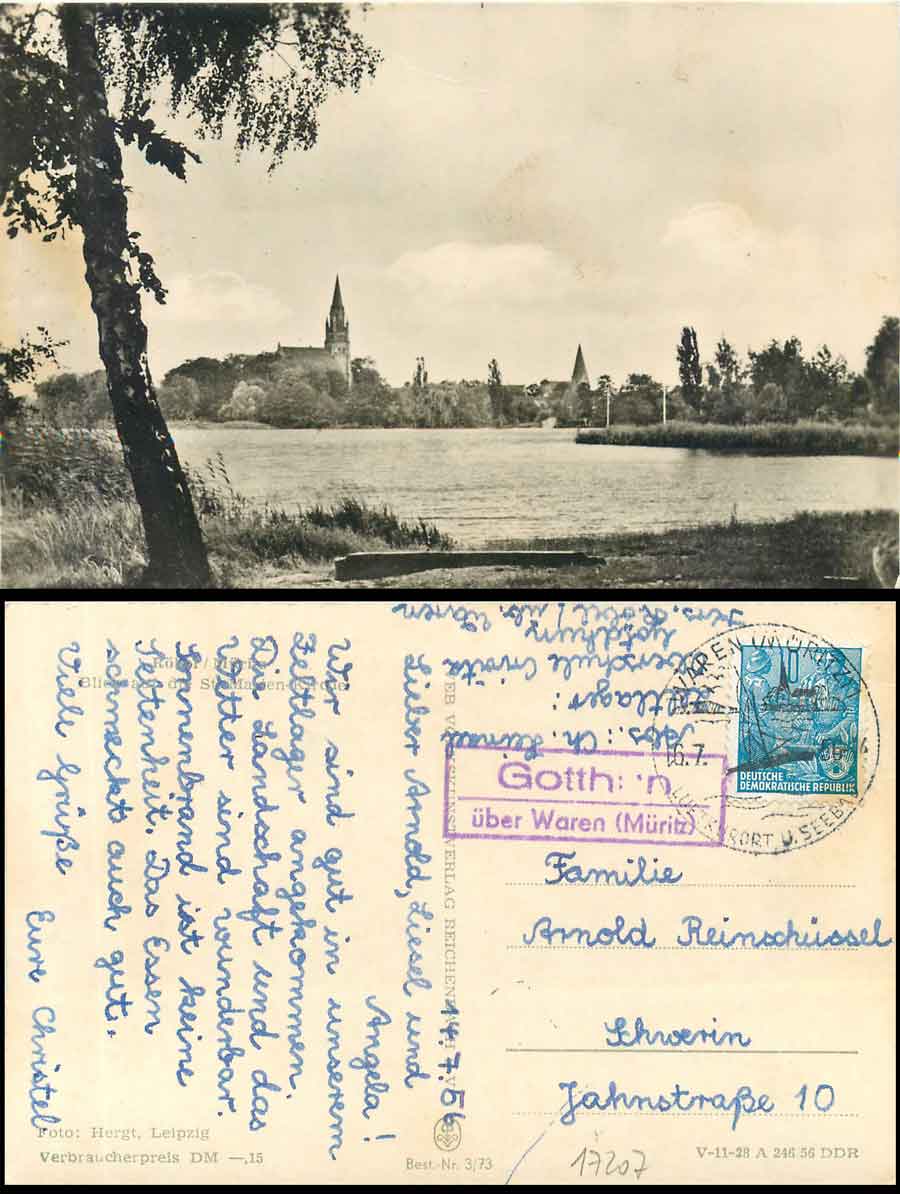 Röbel/Müritz
Blick auf die St. Marien-Kirche
14. 7. 56
Lieber Arnold, Liesel und
Angela!
Wir sind gut in unserem
Zeltlager angekommen.
Die Landschaft und das
Wetter sind wunderbar.
Sonnenbrand ist keine
Seltenheit. Das Essen
schmeckt auch gut.
Viele Grüße
Eure Christel
Abs.: Ch.
Zeltlager:
WAREN (MÜRITZ)
16.7.
LUFTKURORT U. SEEBAD
DEUTSCHE
DEMOKRATISCHE REPUBLIK
Gotth n
über Waren (Müritz)
Familie
Arnold Reinschüssel
Schwerin
Jahnstraße 10
VERLAG
Foto: Hergt, Leipzig
Verbraucherpreis DM —,15
Best.-Nr. 3/73
17207
V-11-28 A 246 56 DDR